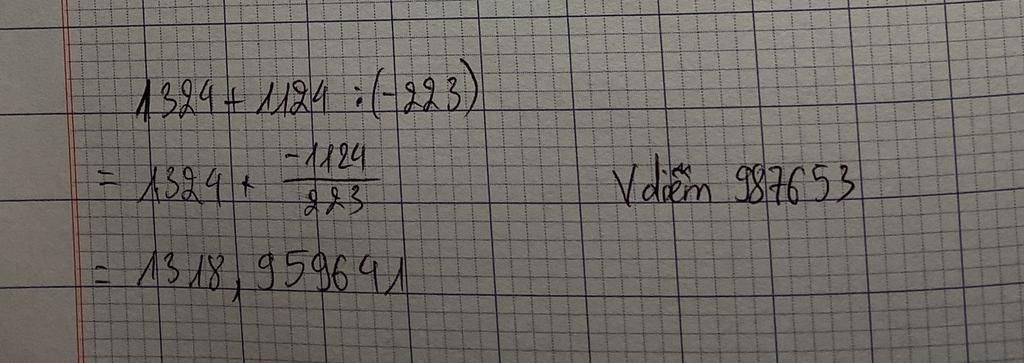 1324 + 1124 : (-223)
= 1324 + -1124/223
V diễm 987653
= 1318,959641